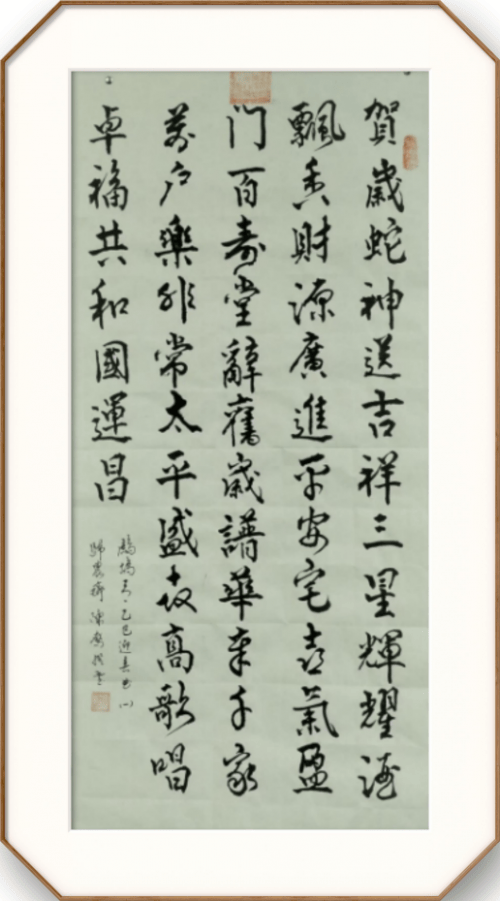 賀歲蛇神送吉祥三星輝耀酒
飄香財源廣進平安宅喜氣盈
门百壽堂辭舊歲譜華章千家
萬户樂非常太平盛高歌唱
卓福共和國運昌
鷓鴣天·乙巳迎春